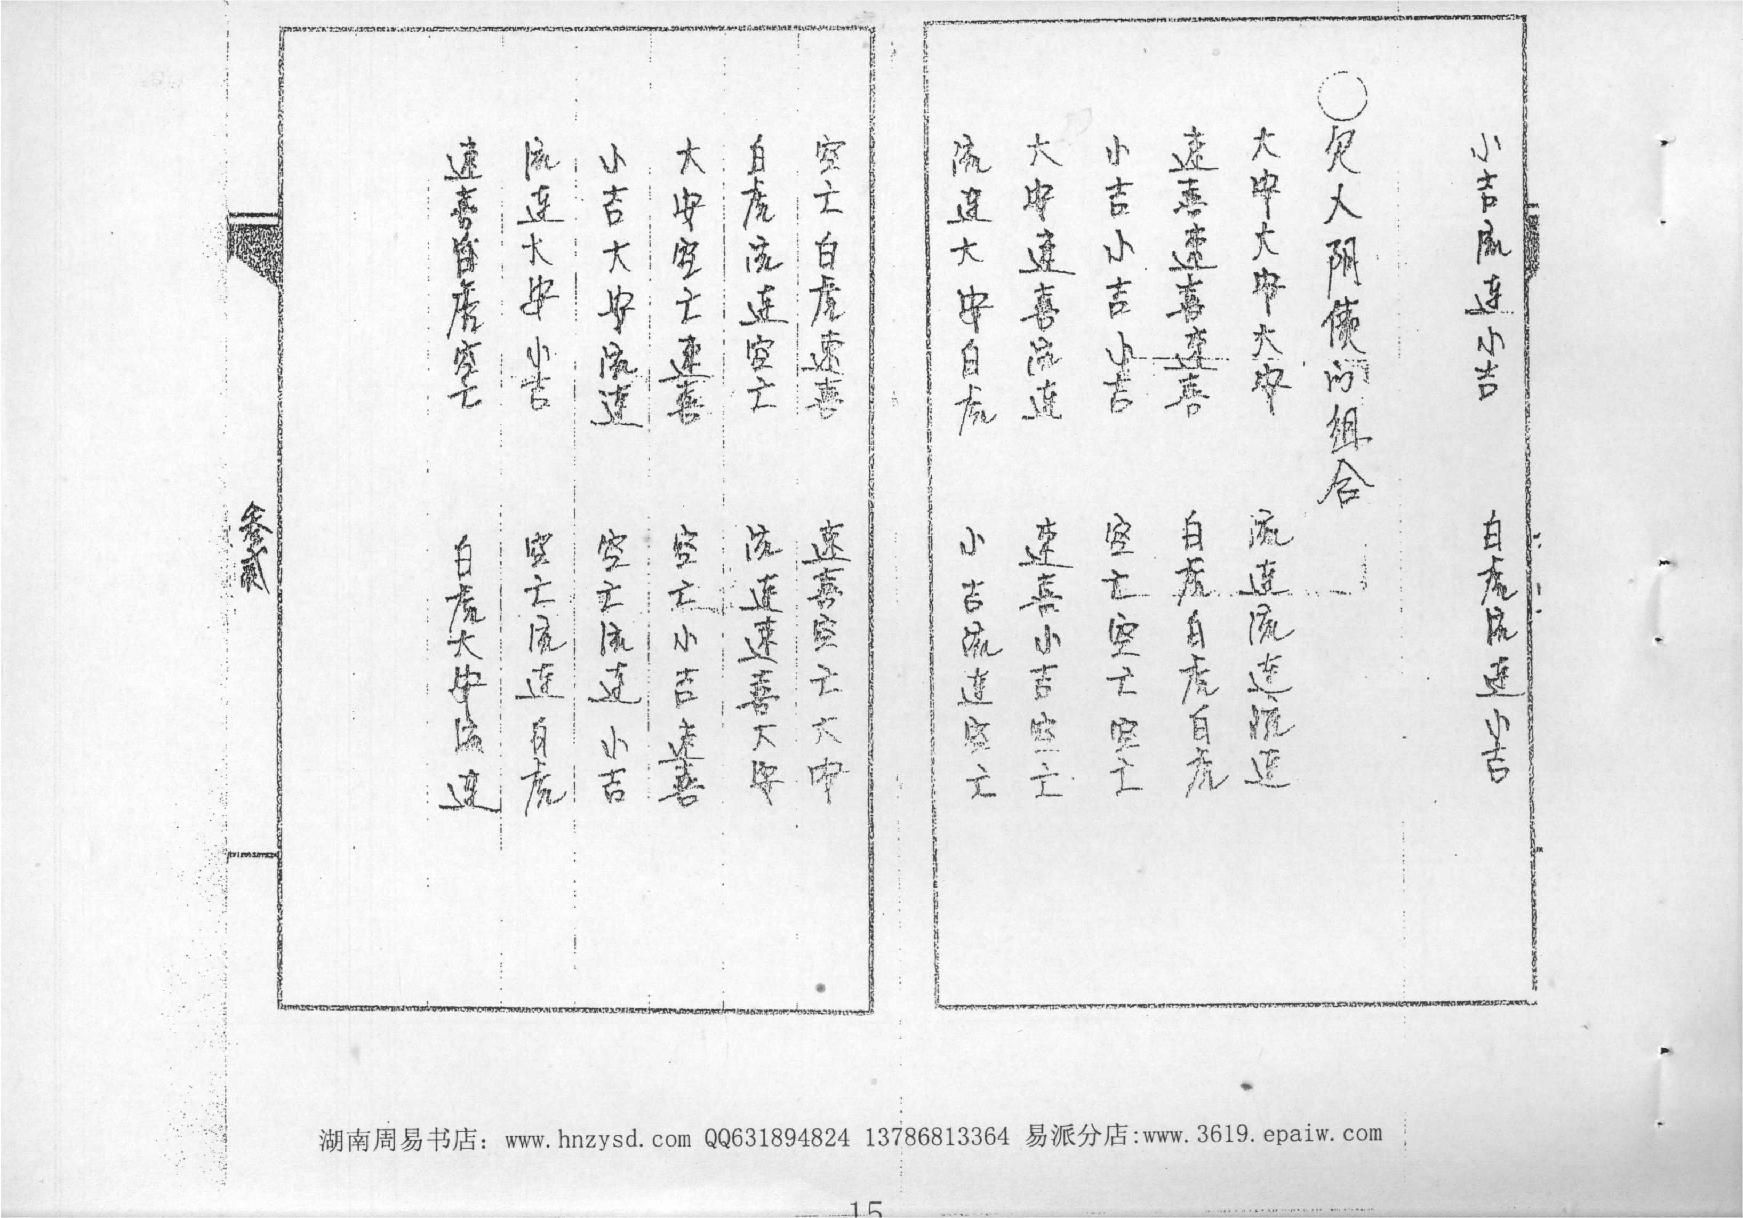 小吉流连小吉
白虎流连小吉
○欠人阴债的组合
大安大安大安
流连流连流连
速喜速喜速喜
白虎白虎白虎
小吉小吉小吉
空亡空亡空亡
大安速喜流连
速喜小吉空亡
流连大安白虎
小吉流连空亡
空亡白虎速喜
速喜空亡大安
白虎流连空亡
流连速喜大安
大安空亡速喜
空亡小吉速喜
小吉大安流连
空亡流连小吉
流连大安小吉
空亡流连白虎
速喜白虎空亡
白虎大安流连
湖南周易书店: www.hnzysd.com QQ631894824 13786813364 易派分店:www.3619.epaiw.com
15